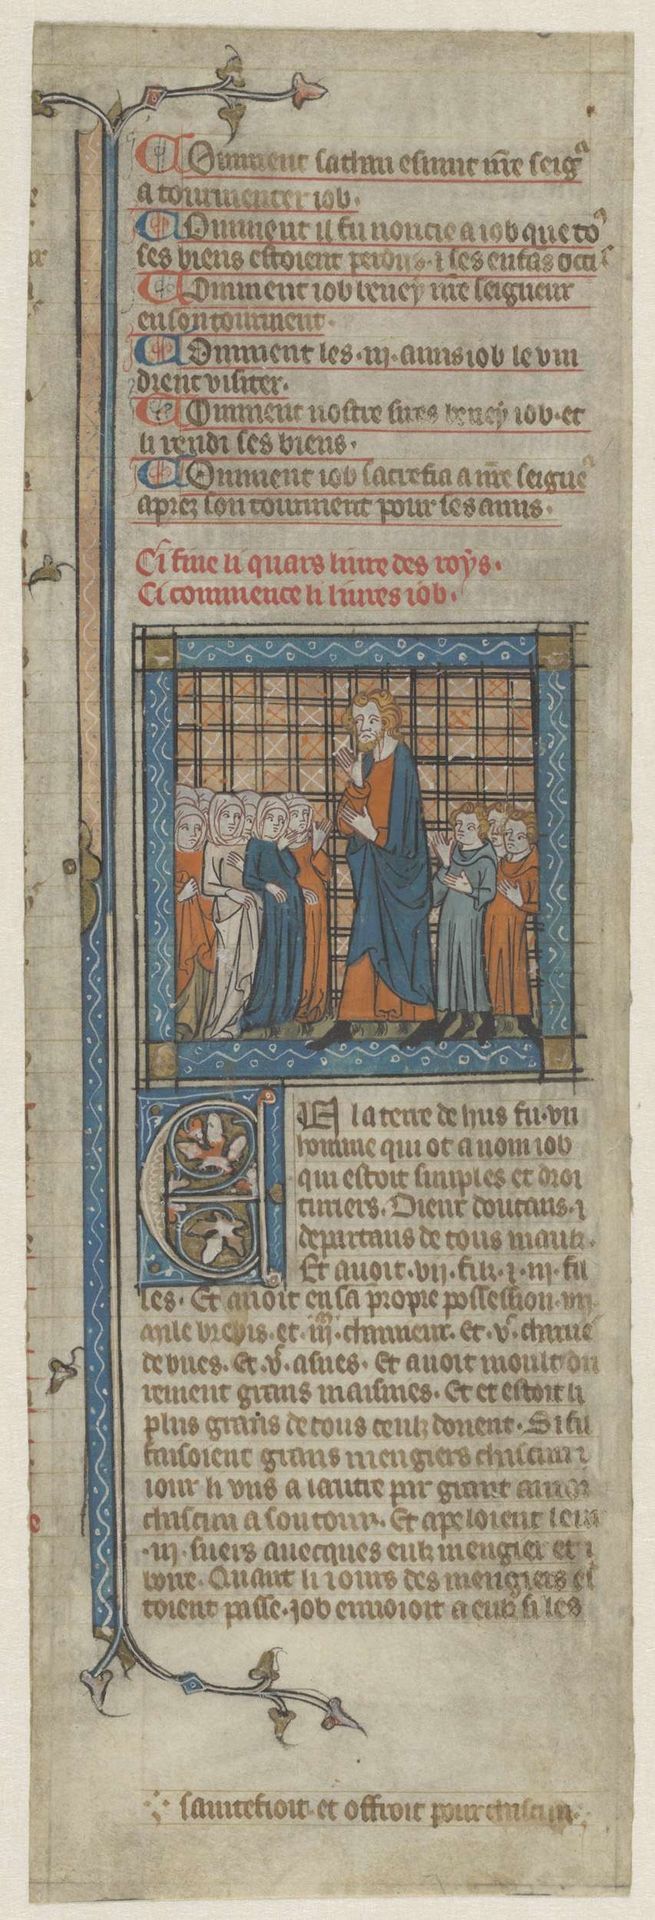 Comment sathan esmut nr̄e seigr
a tourmenter iob.
Comment il fu noncie a iob que to9
ses biens estoient perdus. ⁊ ses enfās occis
Comment iob beney nr̄e seigneur
en son tourment.
Comment les .iii. amis iob le vin
drent visiter.
Comment nostre sires beney iob. et
li rendi ses biens.
Comment iob sacrefia a nr̄e seigneᵃ
aprez son tourment pour ses amis.
Ci fine li quars liure des roys.
Ci commence li liures iob.
EN la terre de hus fu .vn
homme qui ot a nom iob
qui estoit simples et droi
turiers. Dieu doutans. ⁊
departans de tous maulz.
Et auoit .vii. filz. ⁊ .iii. fil
les. Et auoit en sa propre possession .vii.
mile brebis. et .iii.ᵐ chameux. et .vᶜ. charue
de bues. Et .vᶜ. asnes. Et auoit moult du
rement grans maisnies. Et cᵗ estoit li
plus grans de tous ceulz dorient. Si fil
faisoient grans mengiers chascun
iour li vns a lautre par grant amor
chascun a son tour. Et apeloient leur
.iii. suers auecques eulz mengier et
boire. Quant li iours des mengiers es
toient passe. iob enuoioit a eulz si les
saintefioit. et offroit pour chascun.